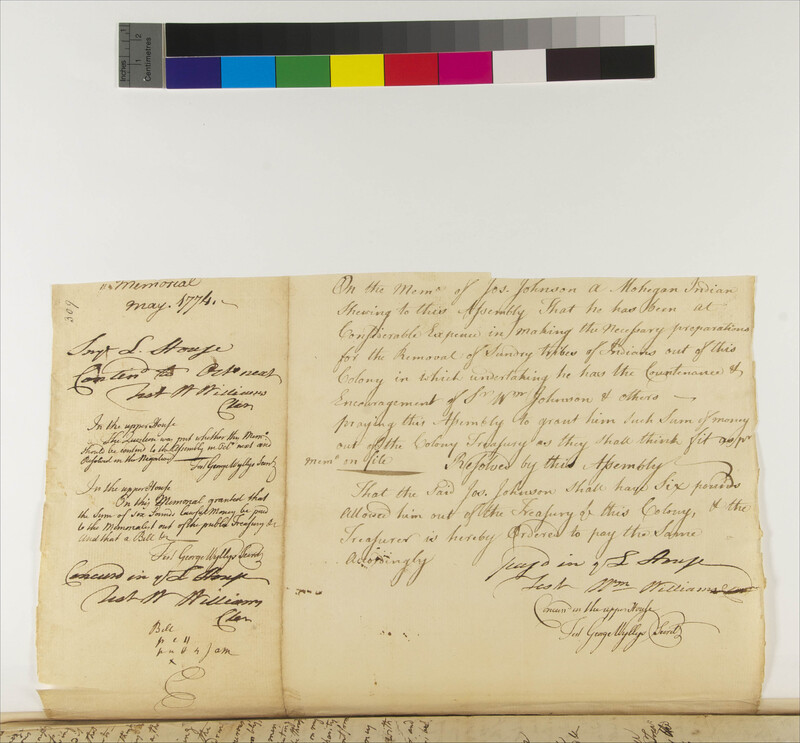 Inches
1
2
Centimetres
309
Memorial
May. 1774.
In ye L. House
Contind to Octo next
Test W Williams
Cler
In the upper House
The Question was put whether the Memo
should be contind to the Assembly in Octr next and
Resolved in the Negative
Test George Wyllys Secrety
In the upper House
On this Memorial granted that
the Sum of Six Pounds Lawful Money be paid
to the Memorialist out of the public Treasury &c
And that a Bill be
Test George Wyllys Secrety
Concurd in ye L House
Test W Williams
Cler
Bill
On the Memo of Jos. Johnson a Mohegan Indian
Shewing to this Assembly That he has been at
Considerable Expence in making the Necessary preparations
for the Removal of Sundry tribes of Indians out of this
Colony in which undertaking he has the Countenance &
Encouragement of Sr Wm Johnson & others —
praying this Assembly to grant him such Sum of money
out of the Colony Treasury as they shall think fit as pr
memo on file Resolved by this Assembly
That the Said Jos. Johnson shall have Six pounds
allowed him out of the Treasury of this Colony, & the
Treasurer is hereby Ordered to pay the Same
Accordingly
Pass'd in ye L House
Test Wm Williams
Concurd in the upper House
Test George Wyllys Secrety